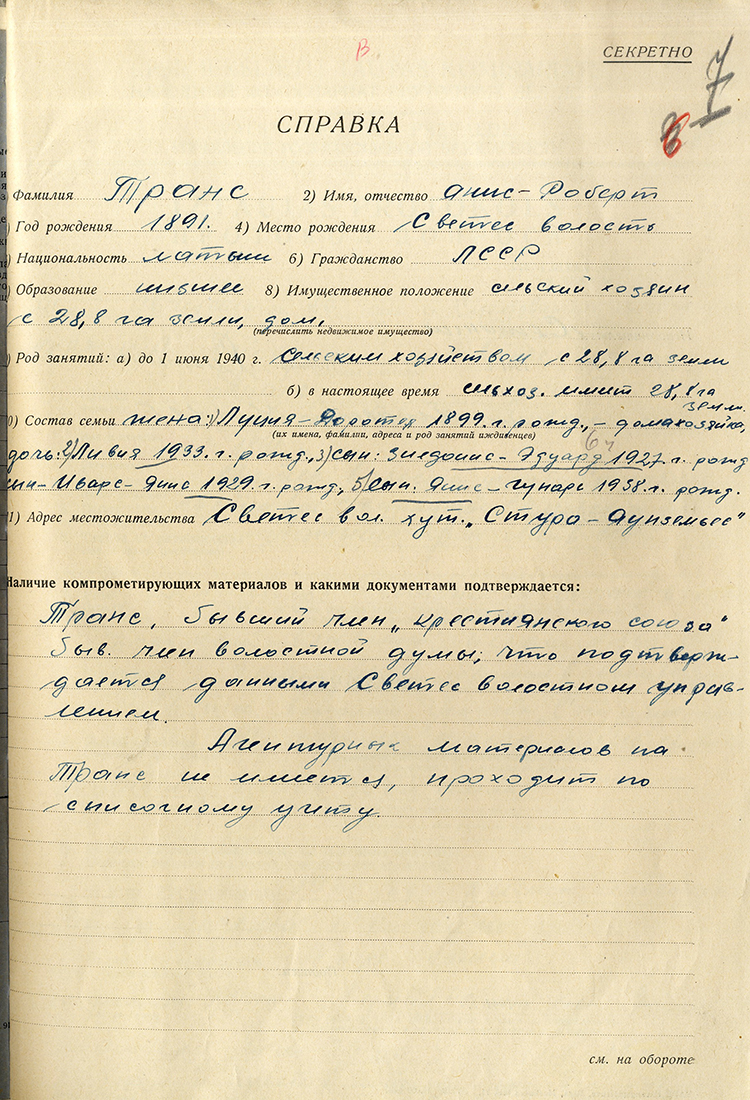 В.
СЕКРЕТНО
7
6
СПРАВКА
Фамилия Транс 2) Имя, отчество Анис-Роберт
) Год рождения 1891. 4) Место рождения Светес волость
) Национальность латыш 6) Гражданство ЛССР
) Образование низшее 8) Имущественное положение сельский хозяин
с 28,8 га земли, дом.
(перечислить недвижимое имущество)
) Род занятий: а) до 1 июня 1940 г. сельским хозяйством с 28,8 га земли
б) в настоящее время сельхоз. имеет 28,8 га
земли.
0) Состав семьи жена: 1) Луция-Доротея 1899. г. рожд., – домахозяйка,
(их имена, фамилии, адреса и род занятий иждивенцев)
дочь: 2) Ливия 1933. г. рожд., 3) сын: Зиедонис-Эдуард 1927 г. рожд
ын-Иварс-Янис 1929 г. рожд., 5) сын. Янис-Гунарс 1938 г. рожд.
1) Адрес местожительства Светес вол. хут. „Стура-Яунземьес"
Наличие компрометирующих материалов и какими документами подтверждается:
Транс, бывший член „крестианского союза"
быв. член волостной думы; что подтверж-
дается данными Светес волостном управ-
лением.
Агентурных материалов на
Транс не имеется, проходит по
списочному учету.
см. на обороте